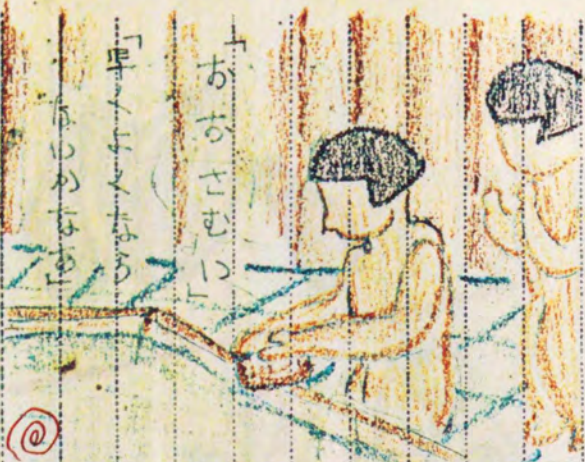 「おおさむい」
「早くよくなら
ないかなあ」